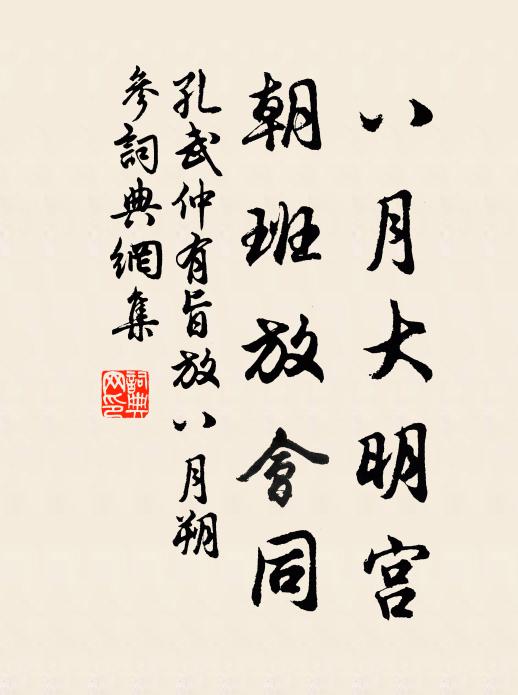 八月大明宫
朝班放會同
孔武仲有旨放八月朔
參詞典網集
詞典網印